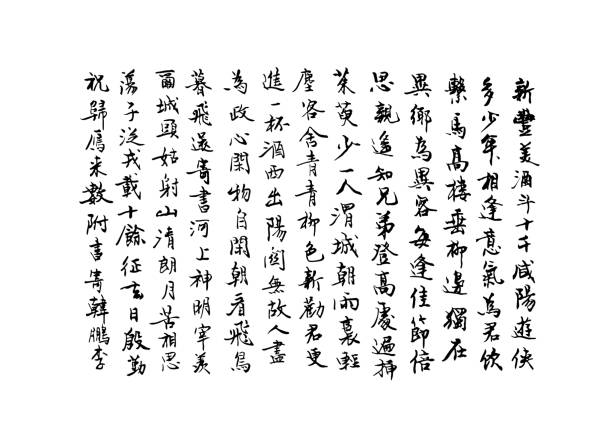 新豐美酒斗十千咸陽遊俠
多少年相逢意氣為君飲
繫馬高樓垂柳邊獨在
異鄉為異客每逢佳節倍
思親遙知兄弟登高處遍插
茱萸少一人渭城朝雨裛輕
塵客舍青青柳色新勸君更
進一杯酒西出陽關無故人盡
為政心閑物自閑朝看飛鳥
暮飛還寄書河上神明宰羨
爾城頭姑射山清朗月苦相思
蕩子從戎載十餘征去日殷勤
祝歸鴈來數附書寄韓鵬李